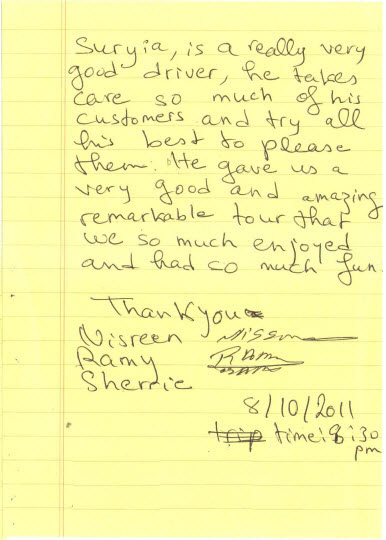 Suryia, is a really very
good driver, he takes
care so much of his
customers and try all
his best to please
them. He gave us a
very good and amazing
remarkable tour that
we so much enjoyed
and had so much fun.
Thank you
Nisreen
Ramy
Sherrie
8/10/2011
trip time: 8:30
pm